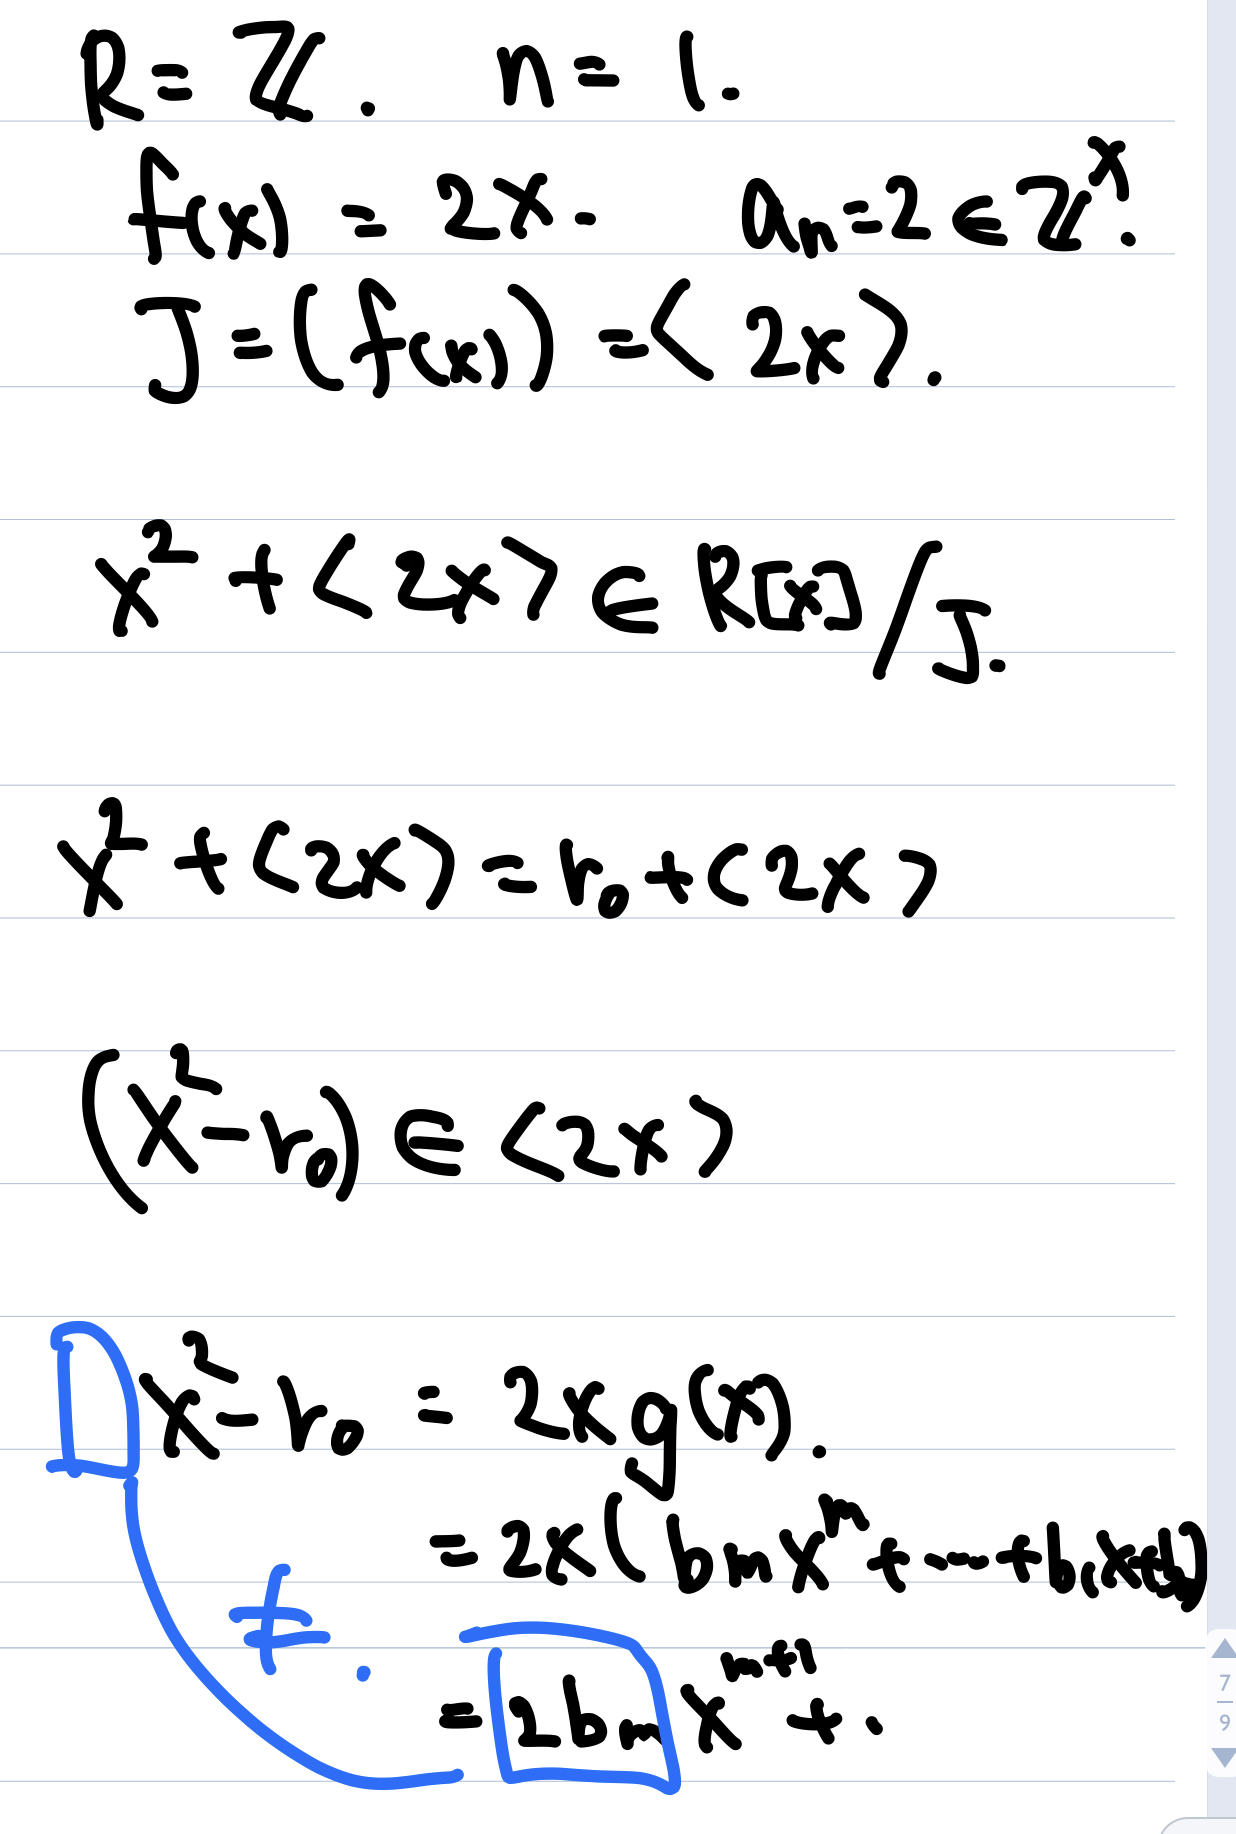 R = ℤ. n = 1.
f(x) = 2x. aₙ = 2 ∈ ℤˣ.
J = (f(x)) = ⟨2x⟩.
x² + ⟨2x⟩ ∈ R[x]/J.
x² + ⟨2x⟩ = r₀ + ⟨2x⟩
(x² - r₀) ∈ ⟨2x⟩
x² - r₀ = 2x g(x).
= 2x(bₘxᵐ + ⋯ + b₁x + b₀)
≠.
= 2bₘ xᵐ⁺¹ + .
7
9